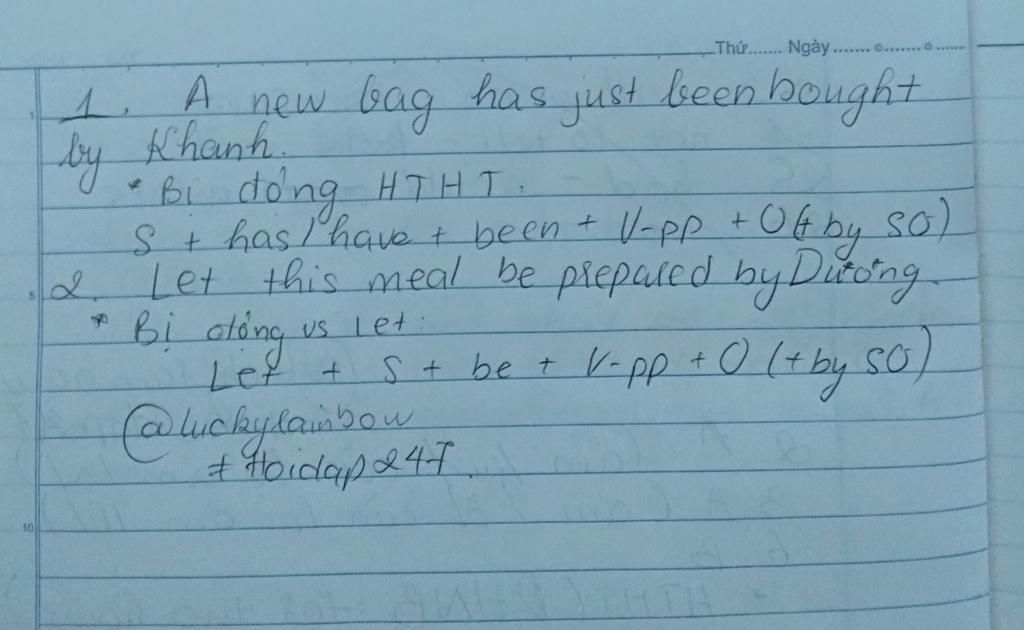 Thứ....... Ngày ....... ....... .......
1. A new bag has just been bought
by Khanh.
* Bị động HTHT.
S + has/have + been + V-pp + O (+ by SO)
5
2. Let this meal be prepared by Dương.
* Bị động vs Let:
Let + S + be + V-pp + O (+ by SO)
@luckyrainbow
# Hoidap247.
10